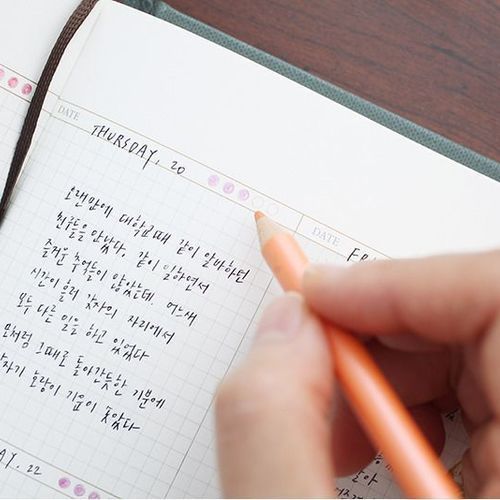 DATE
THURSDAY. 20
오랜만에 대학교때 같이 알바하던
친구들을 만났다, 같이 일하면서
즐거운 추억들이 많았는데 어느새
시간이 흘러 각자의 자리에서
모두 다른 일을 하고 있었다
모처럼 그때로 돌아간듯한 기분에
기분이 좋았다
AY. 22
DATE